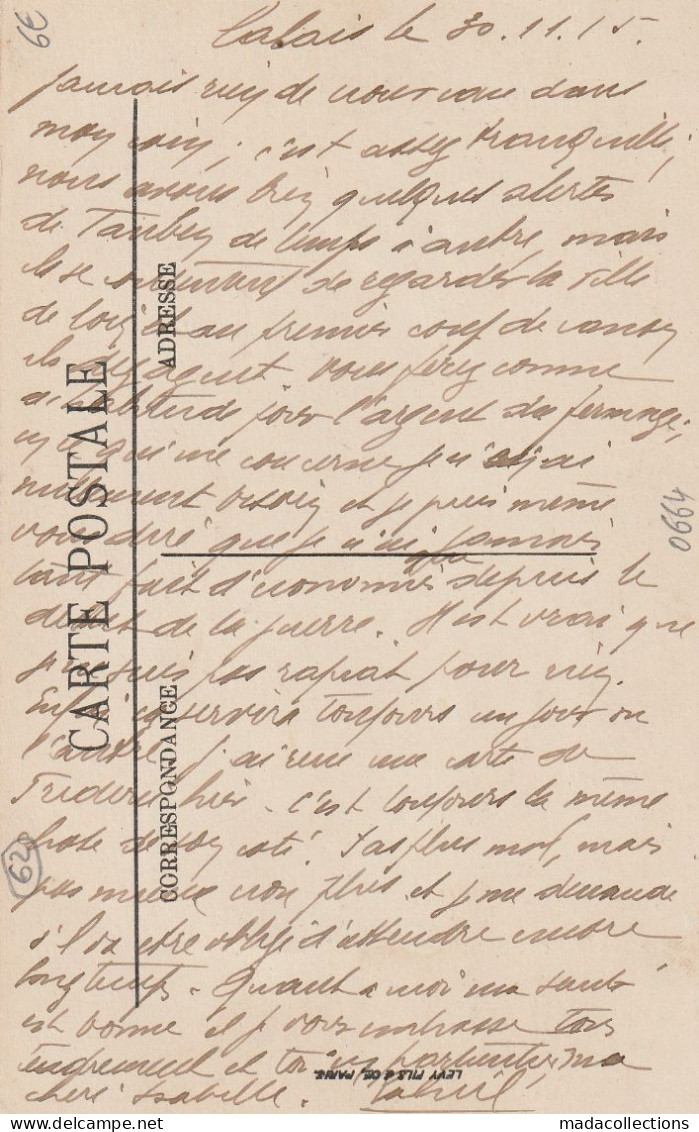 Calais le 30.11.15.
jamais rien de nouveau dans
mon coin, c'est assez tranquille,
nous avons bien quelques alertes
de Taubes de temps à autre, mais
ils se contentent de regarder la ville
de loin et au premier coup de canon
ils dégagent. Vous ferez comme
d'habitude pour l'argent du fermage,
en ce qui me concerne je n'en ai
nullement besoin et je puis même
vous dire que je n'ai jamais
tant fait d'économies que depuis le
début de la guerre. Il est vrai que
je suis pas rapiat pour rien.
Enfin ça servira toujours un jour ou
l'autre. J'ai reçu une carte de
Frédéric hier. C'est toujours la même
chose de son côté. Pas plus mal, mais
pas mieux non plus et je me demande
s'il va être obligé d'attendre encore
longtemps. Quant à moi ma santé
est bonne et je vous embrasse tous
tendrement et toi en particulier, ma
chère Isabelle.
CARTE POSTALE
CORRESPONDANCE
ADRESSE
LEVY FILS & CIE, PARIS.
6€
0664
62
madacollections